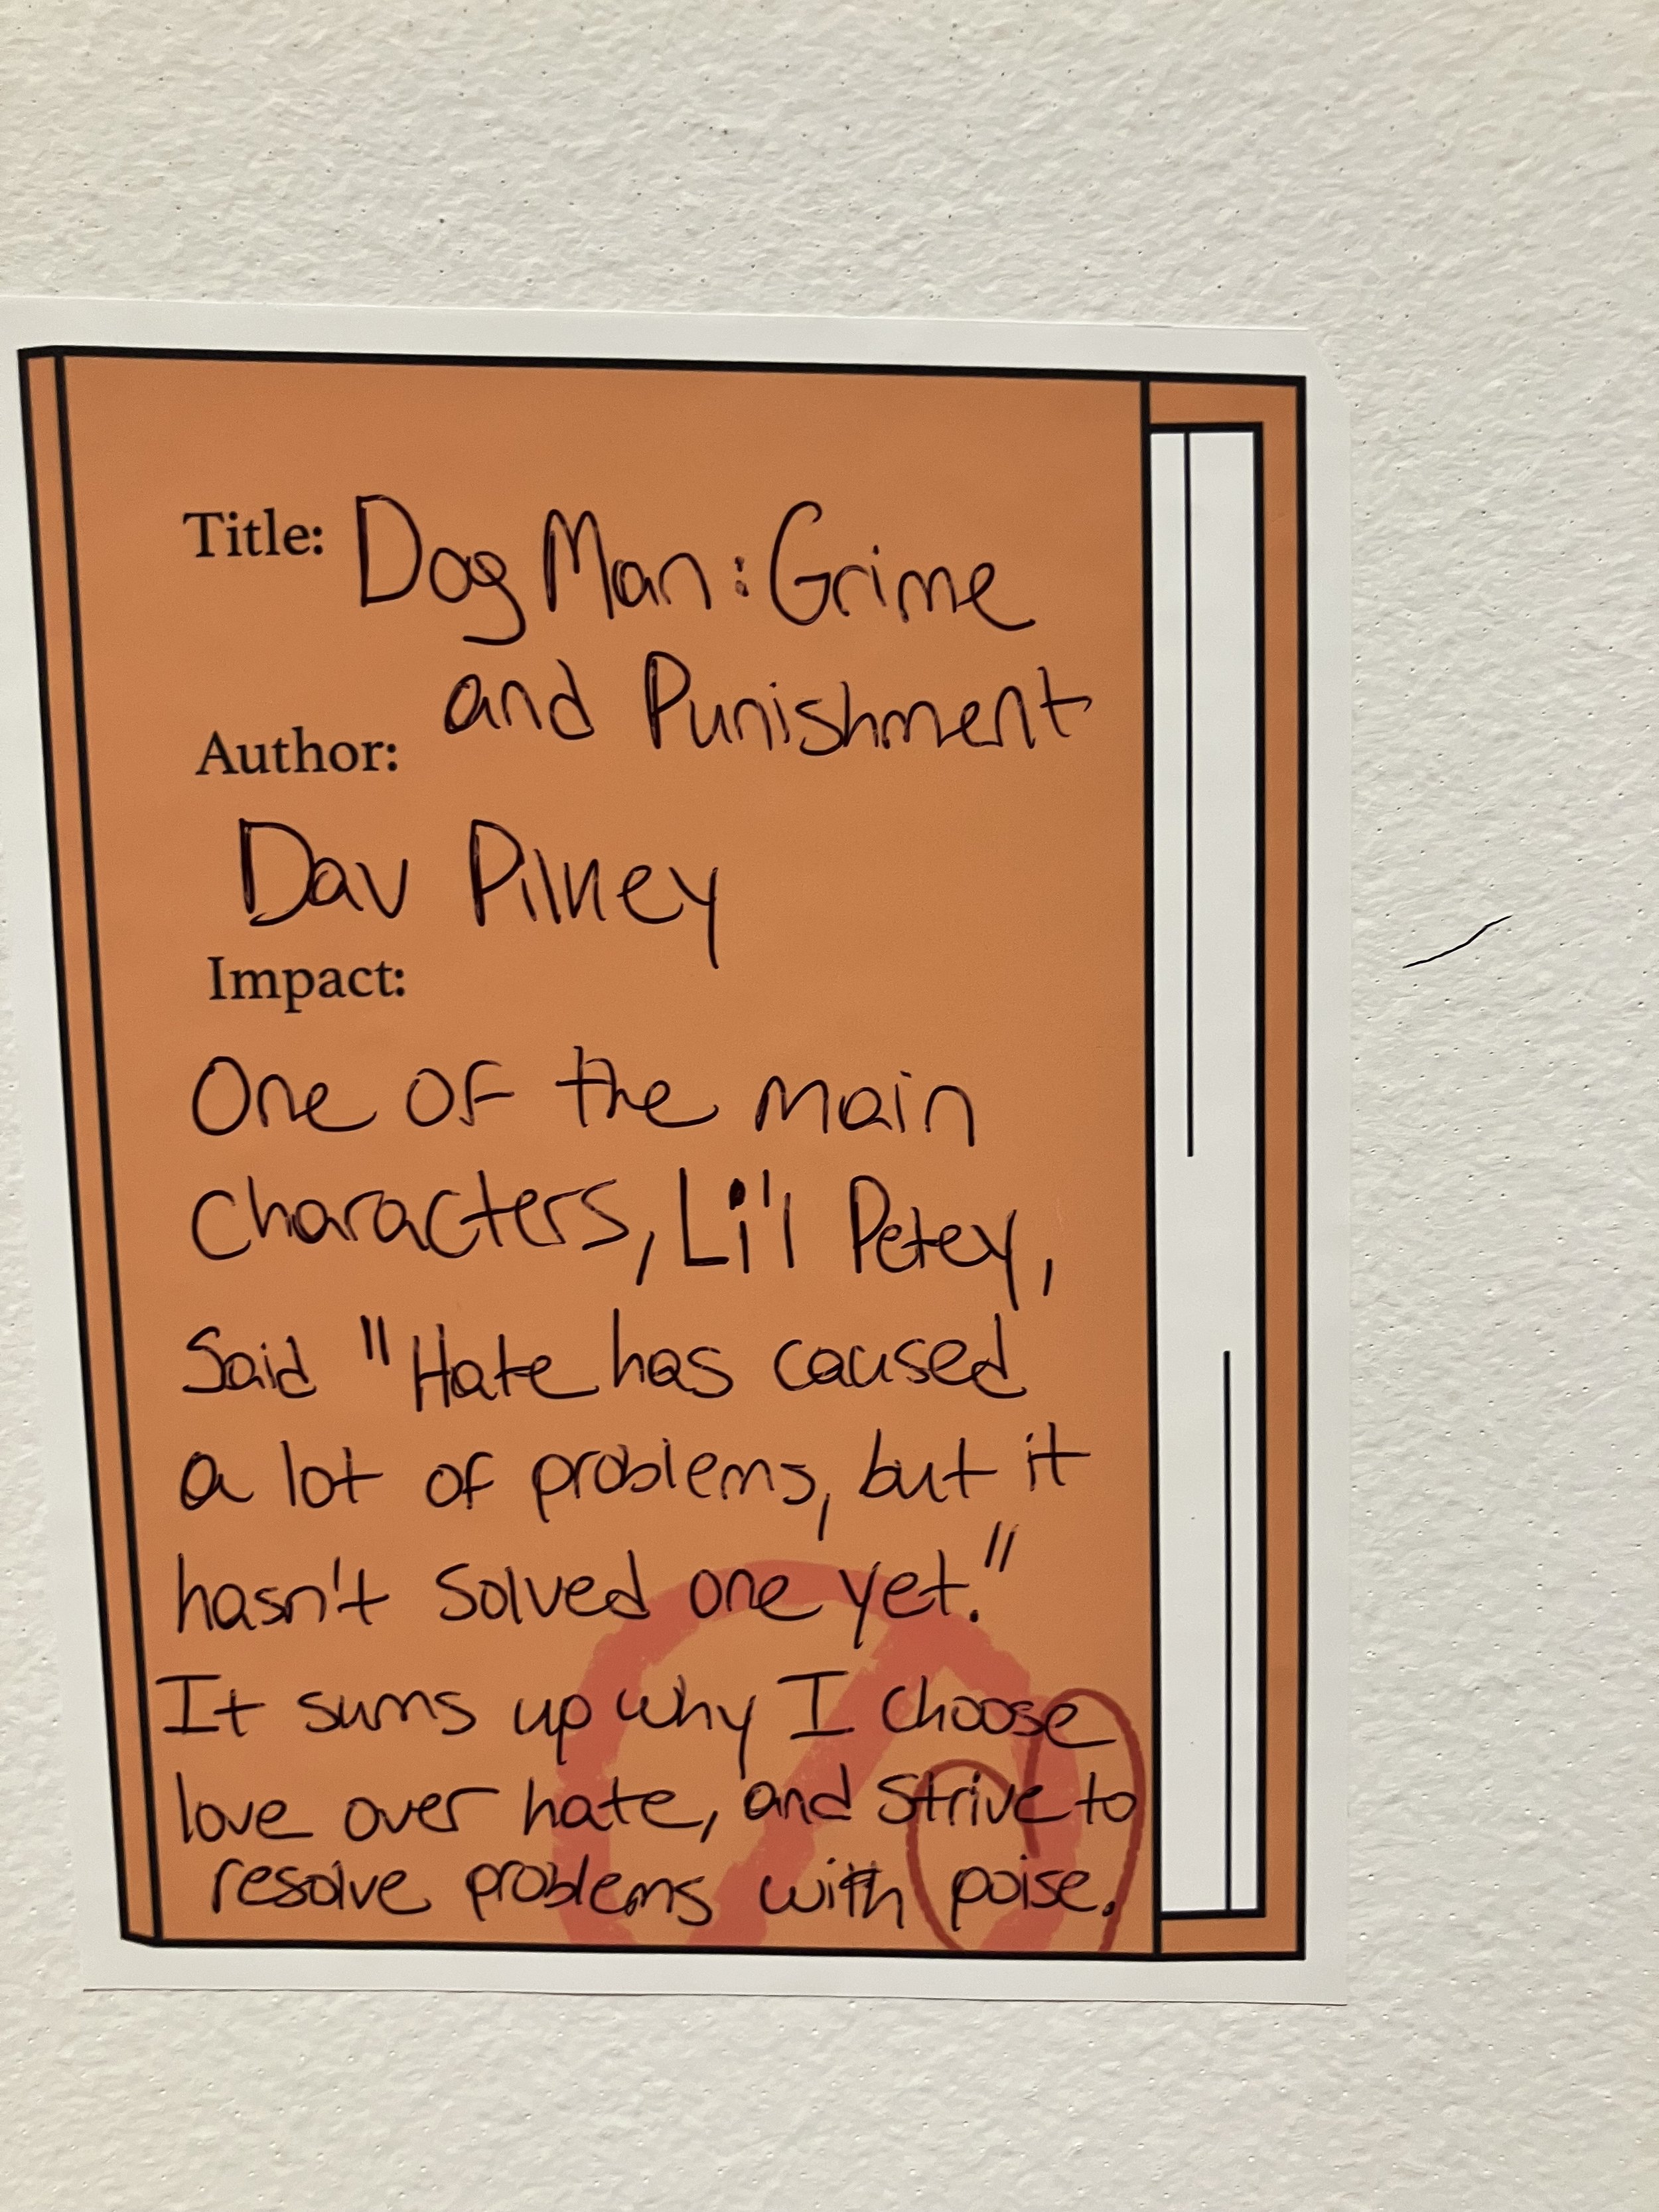 Title: Dog Man: Grime
and Punishment
Author:
Dav Pilkey
Impact:
One of the main
characters, Li'l Petey,
Said "Hate has caused
a lot of problems, but it
hasn't solved one yet."
It sums up why I choose
love over hate, and strive to
resolve problems with poise.